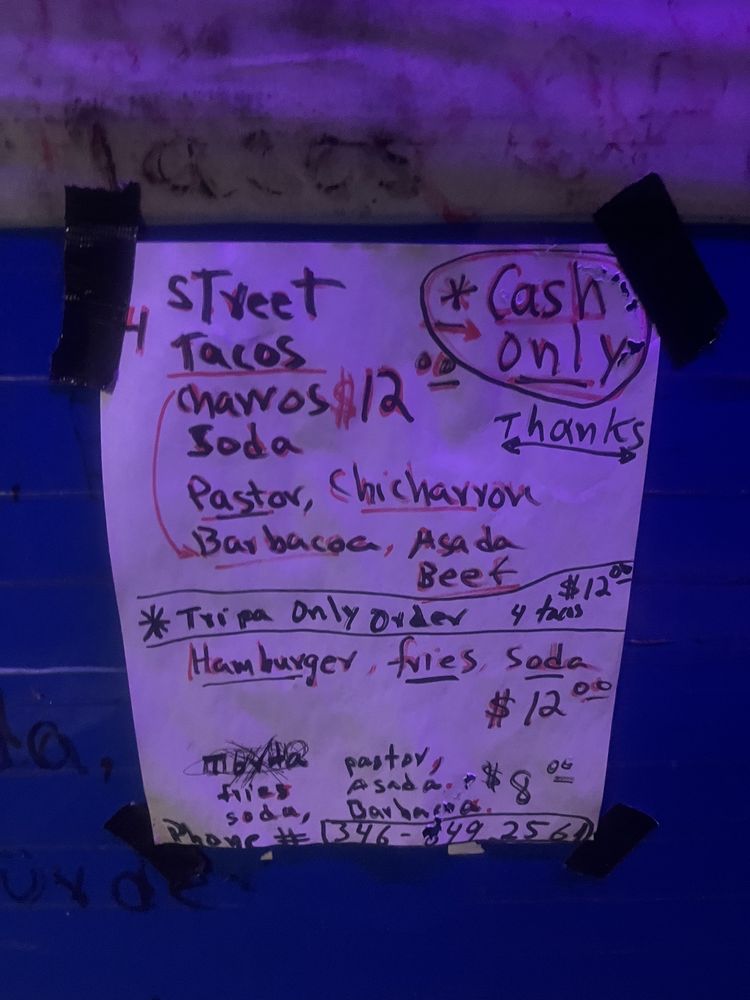 Tacos
4 Street
Tacos
charros $12.00
Soda
* Cash
Only
Thanks
Pastor, Chicharron
Barbacoa, Asada
Beef
* Tripa Only Order 4 tacos $12.00
Hamburger, fries, soda
$12.00
pastor,
fries Asada. $8.00
soda, Barbacoa.
Phone # 346- 49 2561